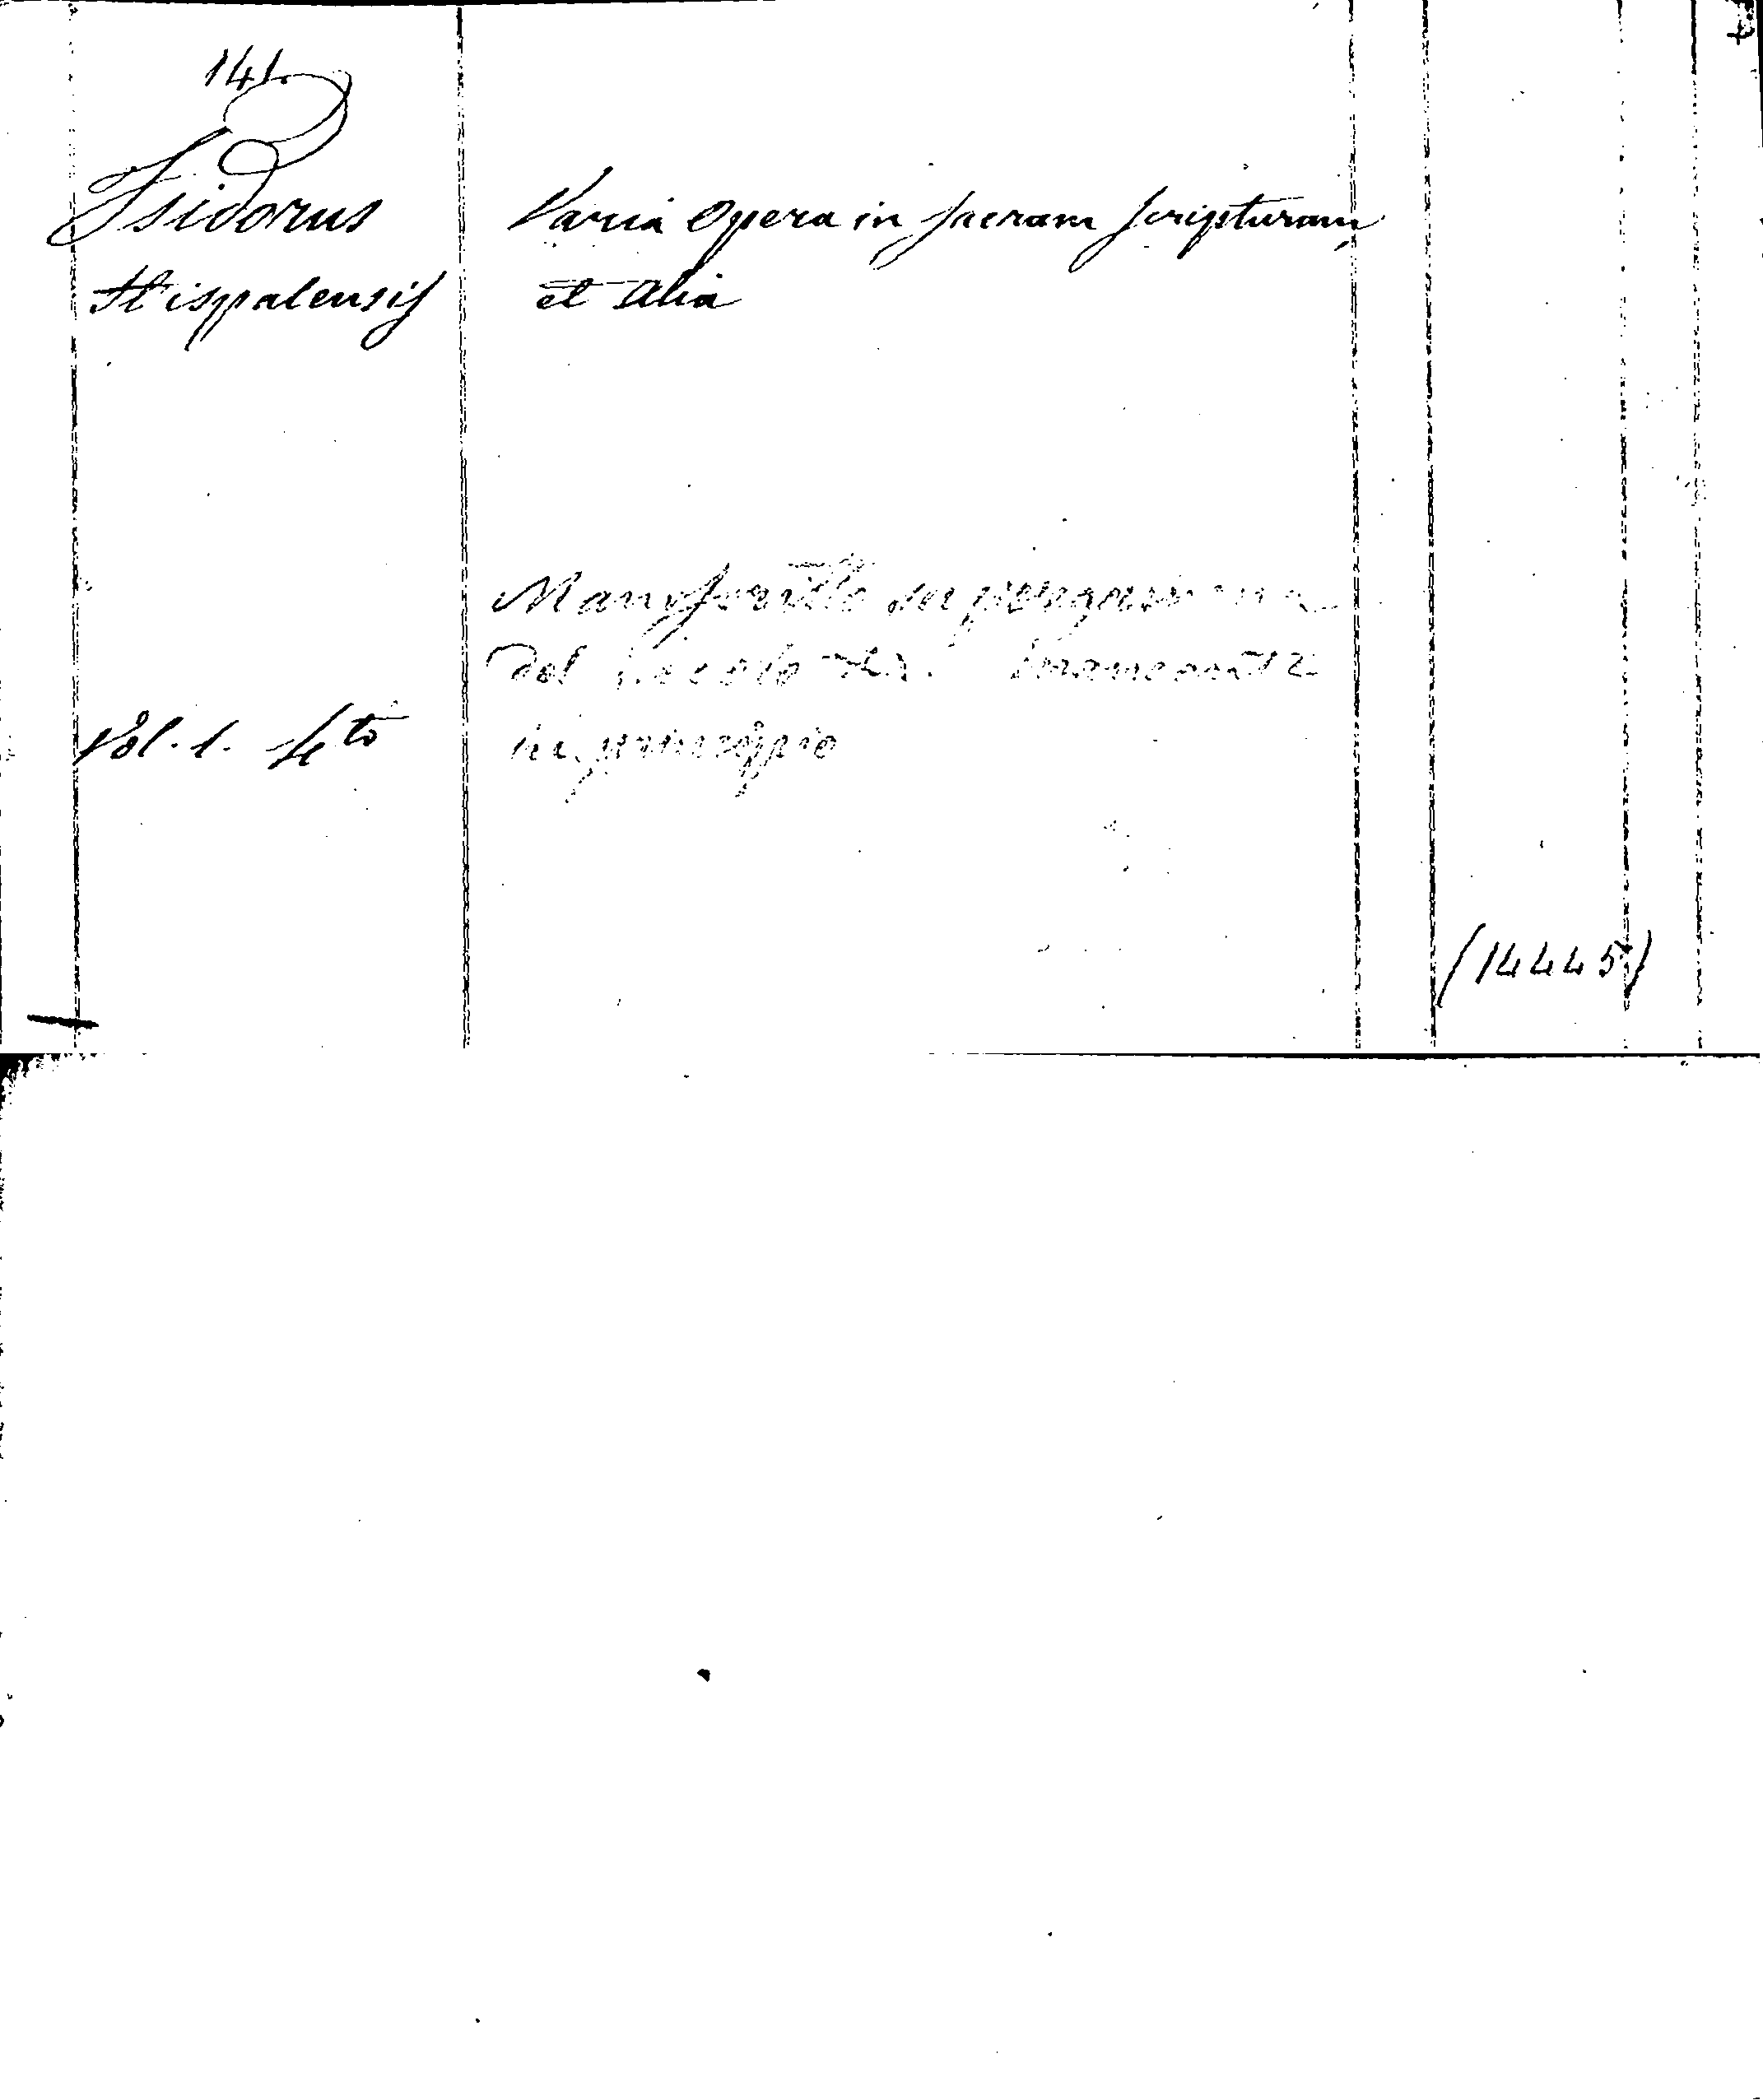 141.
Isidorus
Hispalensis
Varia Opera in Sacram Scripturam
et Alia
Manoscritto in pergamena
del Secolo mancante
in principio
Vol. 1. 4to
(14445)